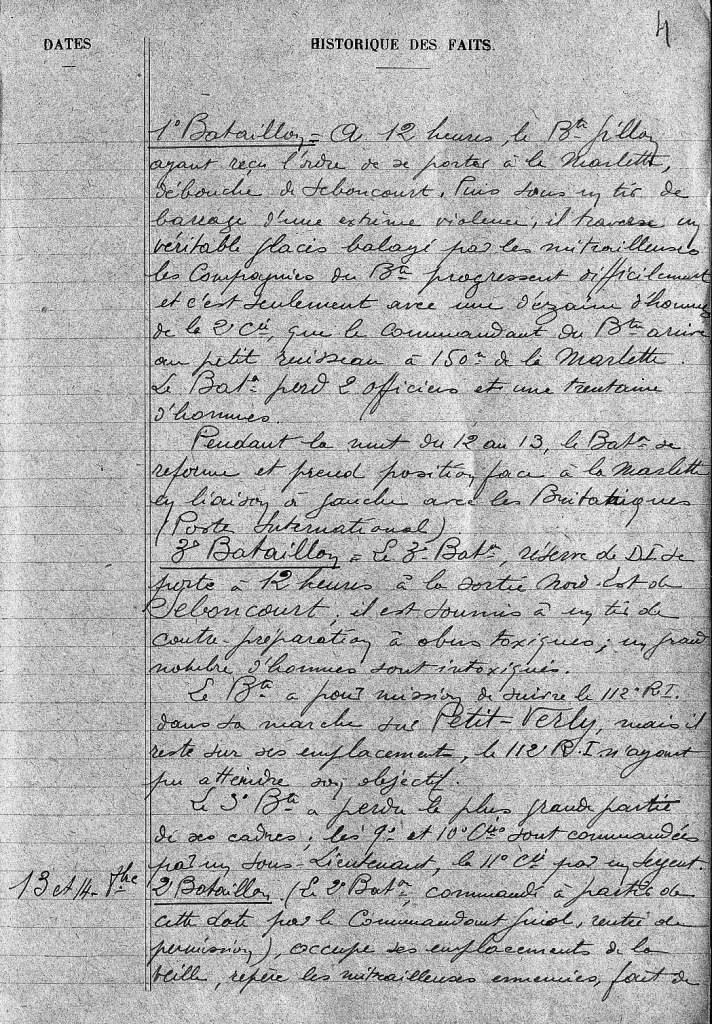 4
DATES
HISTORIQUE DES FAITS.
1° Bataillon = A 12 heures, le Bon Gillon
ayant reçu l'ordre de se porter à la Marlette,
débouche de Seboncourt. Puis sous un tir de
barrage d'une extrême violence, il traverse un
véritable glacis balayé par les mitrailleuses
les Compagnies du Bon progressent difficilement
et c'est seulement avec une dizaine d'hommes
de la 2e Cie, que le Commandant du Bon arrive
au petit ruisseau à 150m de la Marlette.
Le Baton perd 2 officiers et une trentaine
d'hommes.
Pendant la nuit du 12 au 13, le Baton se
reforme et prend position face à la Marlette
en liaison à gauche avec les Britaniques
(Poste International)
3° Bataillon = Le 3e Baton, réserve de DI se
porte à 12 heures à la sortie Nord-Est de
Seboncourt, il est soumis à un tir de
contre-préparation à obus toxiques; un grand
nombre d'hommes sont intoxiqués.
Le Bon a pour mission de suivre le 112e R.I.
dans sa marche sur Petit-Verly, mais il
reste sur ses emplacements, le 112e R.I. n'ayant
pu atteindre son objectif.
Le 3e Bon a perdu la plus grande partie
de ses cadres; les 9e et 10e Cies sont commandées
par un Sous-Lieutenant, la 11e Cie par un Sergent.
13 et 14 8bre
2e Bataillon. (Le 2e Baton, commandé à partir de
cette date par le Commandant, rentré de
permission), occupe ses emplacements de la
veille, repère les mitrailleuses ennemies, fait de